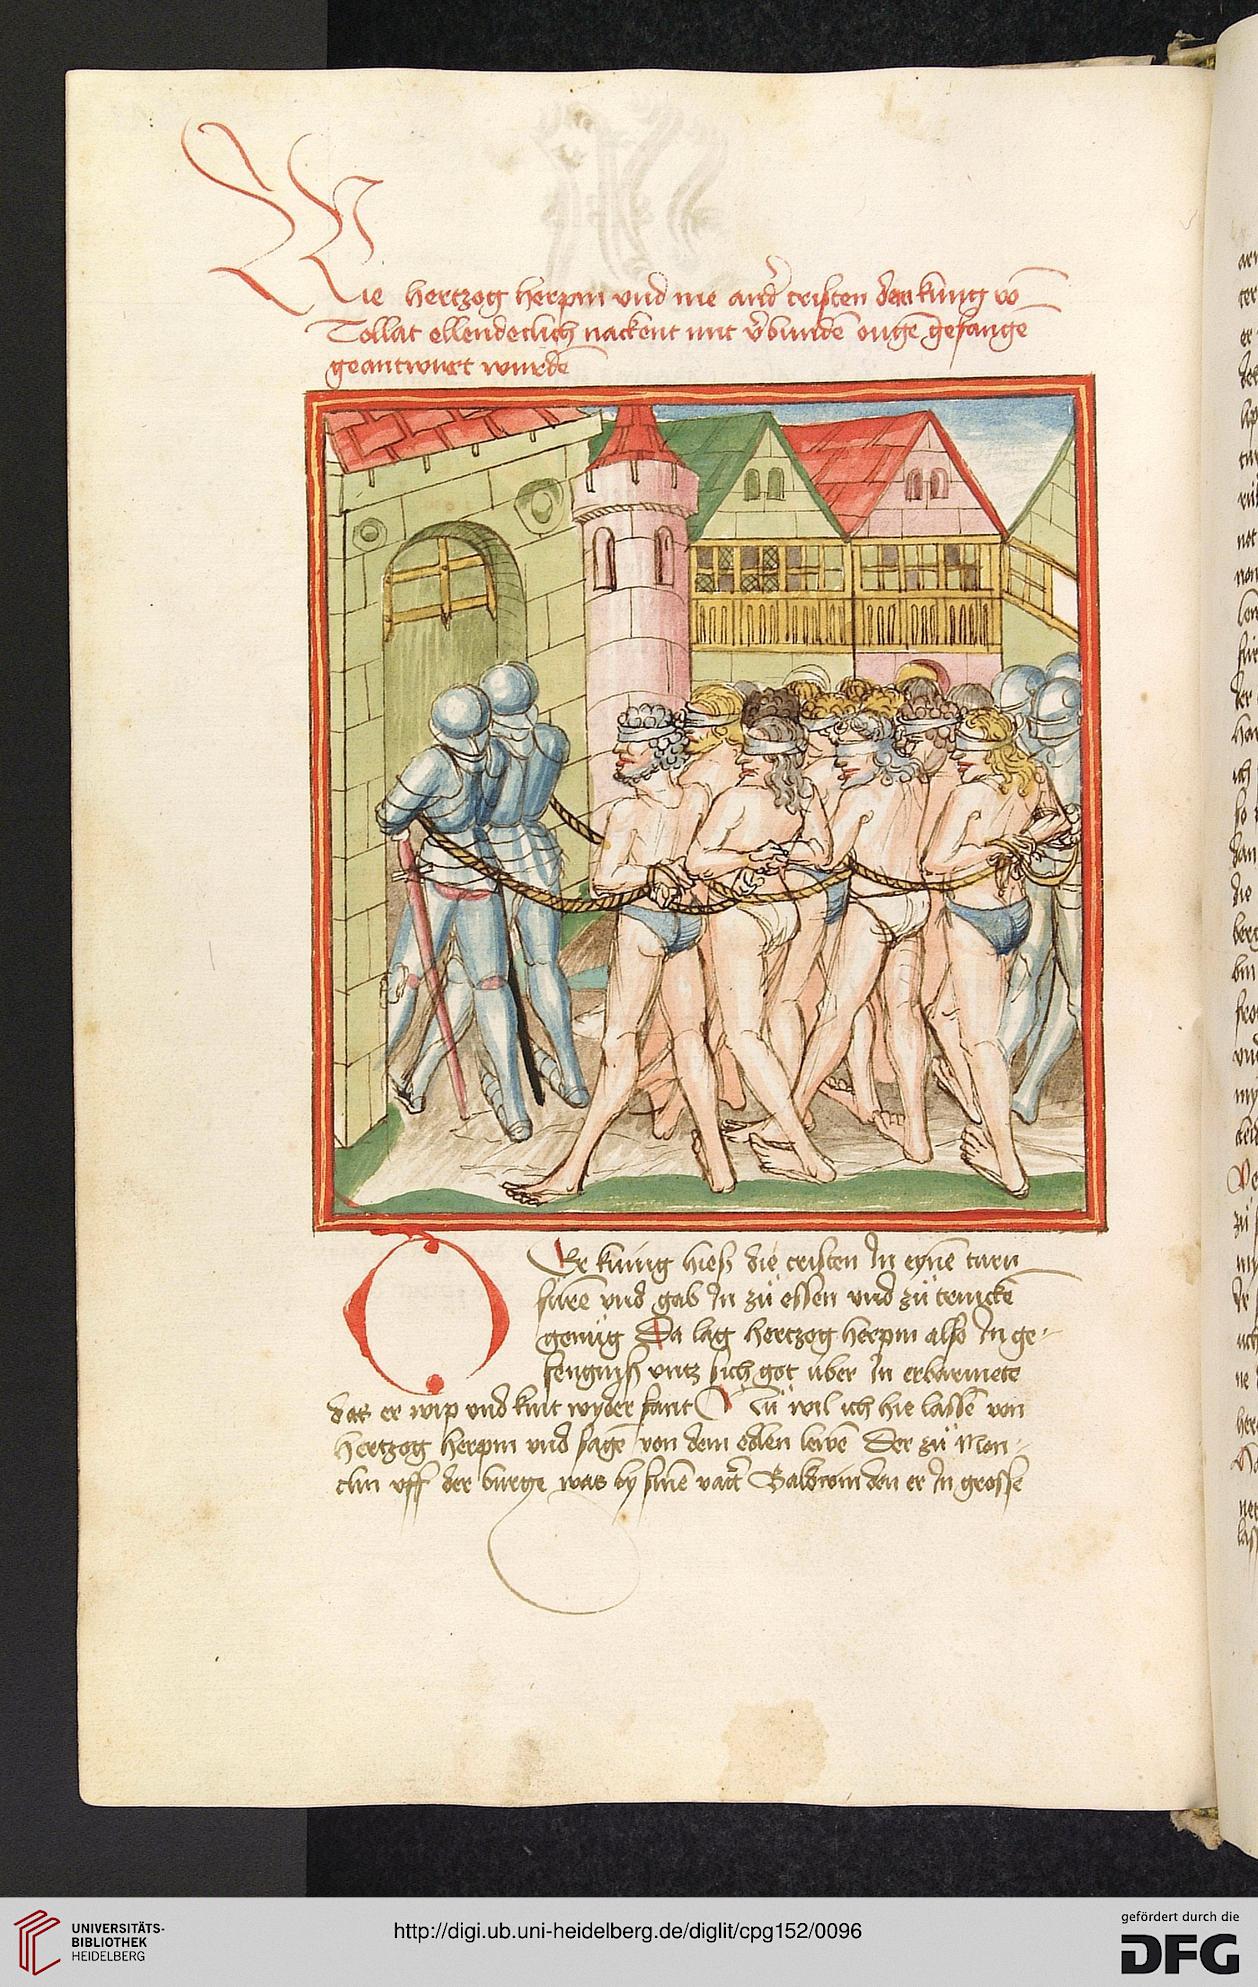 Wie hertzog herpin und me and' cristen dem kùng vō
Tollat ellendeclich nackent mit v'bundē ougē gefangē
geantwurt wurdē
Er kunig hieß die cristen In eynē turn
furē vnd gab In zu essen vnd zu trinckē
genug Da lag hertzog herpin also In ge-
fengniß vntz sich got uber In erbarmete
das er wip vnd kint wyder fant Nu wil ich hie lassē von
Hertzog herpin vnd sagē von dem edlen lewē Der zu Mon-
clin vff der burge was by sinē vatt' Baldwin den er In grosse
UNIVERSITÄTS-
BIBLIOTHEK
HEIDELBERG
http://digi.ub.uni-heidelberg.de/diglit/cpg152/0096
gefördert durch die
DFG